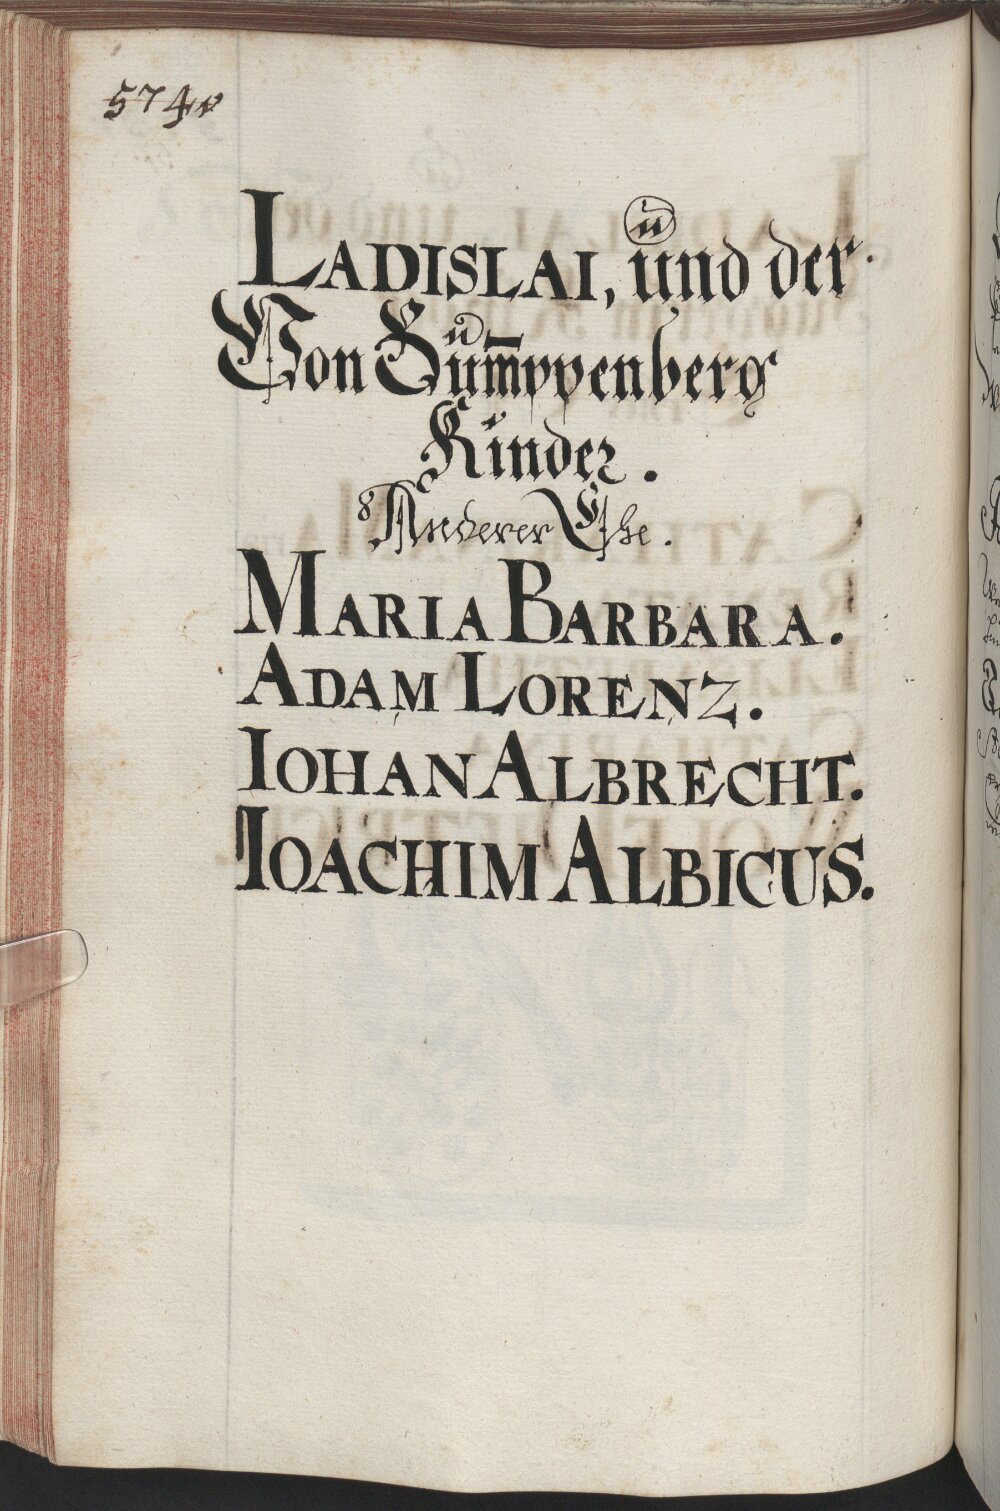 574v
LADISLAI, und der
Von Gumppenberg
Kinder.
8 Anderer Ehe.
MARIA BARBARA.
ADAM LORENZ.
IOHAN ALBRECHT.
IOACHIM ALBICUS.